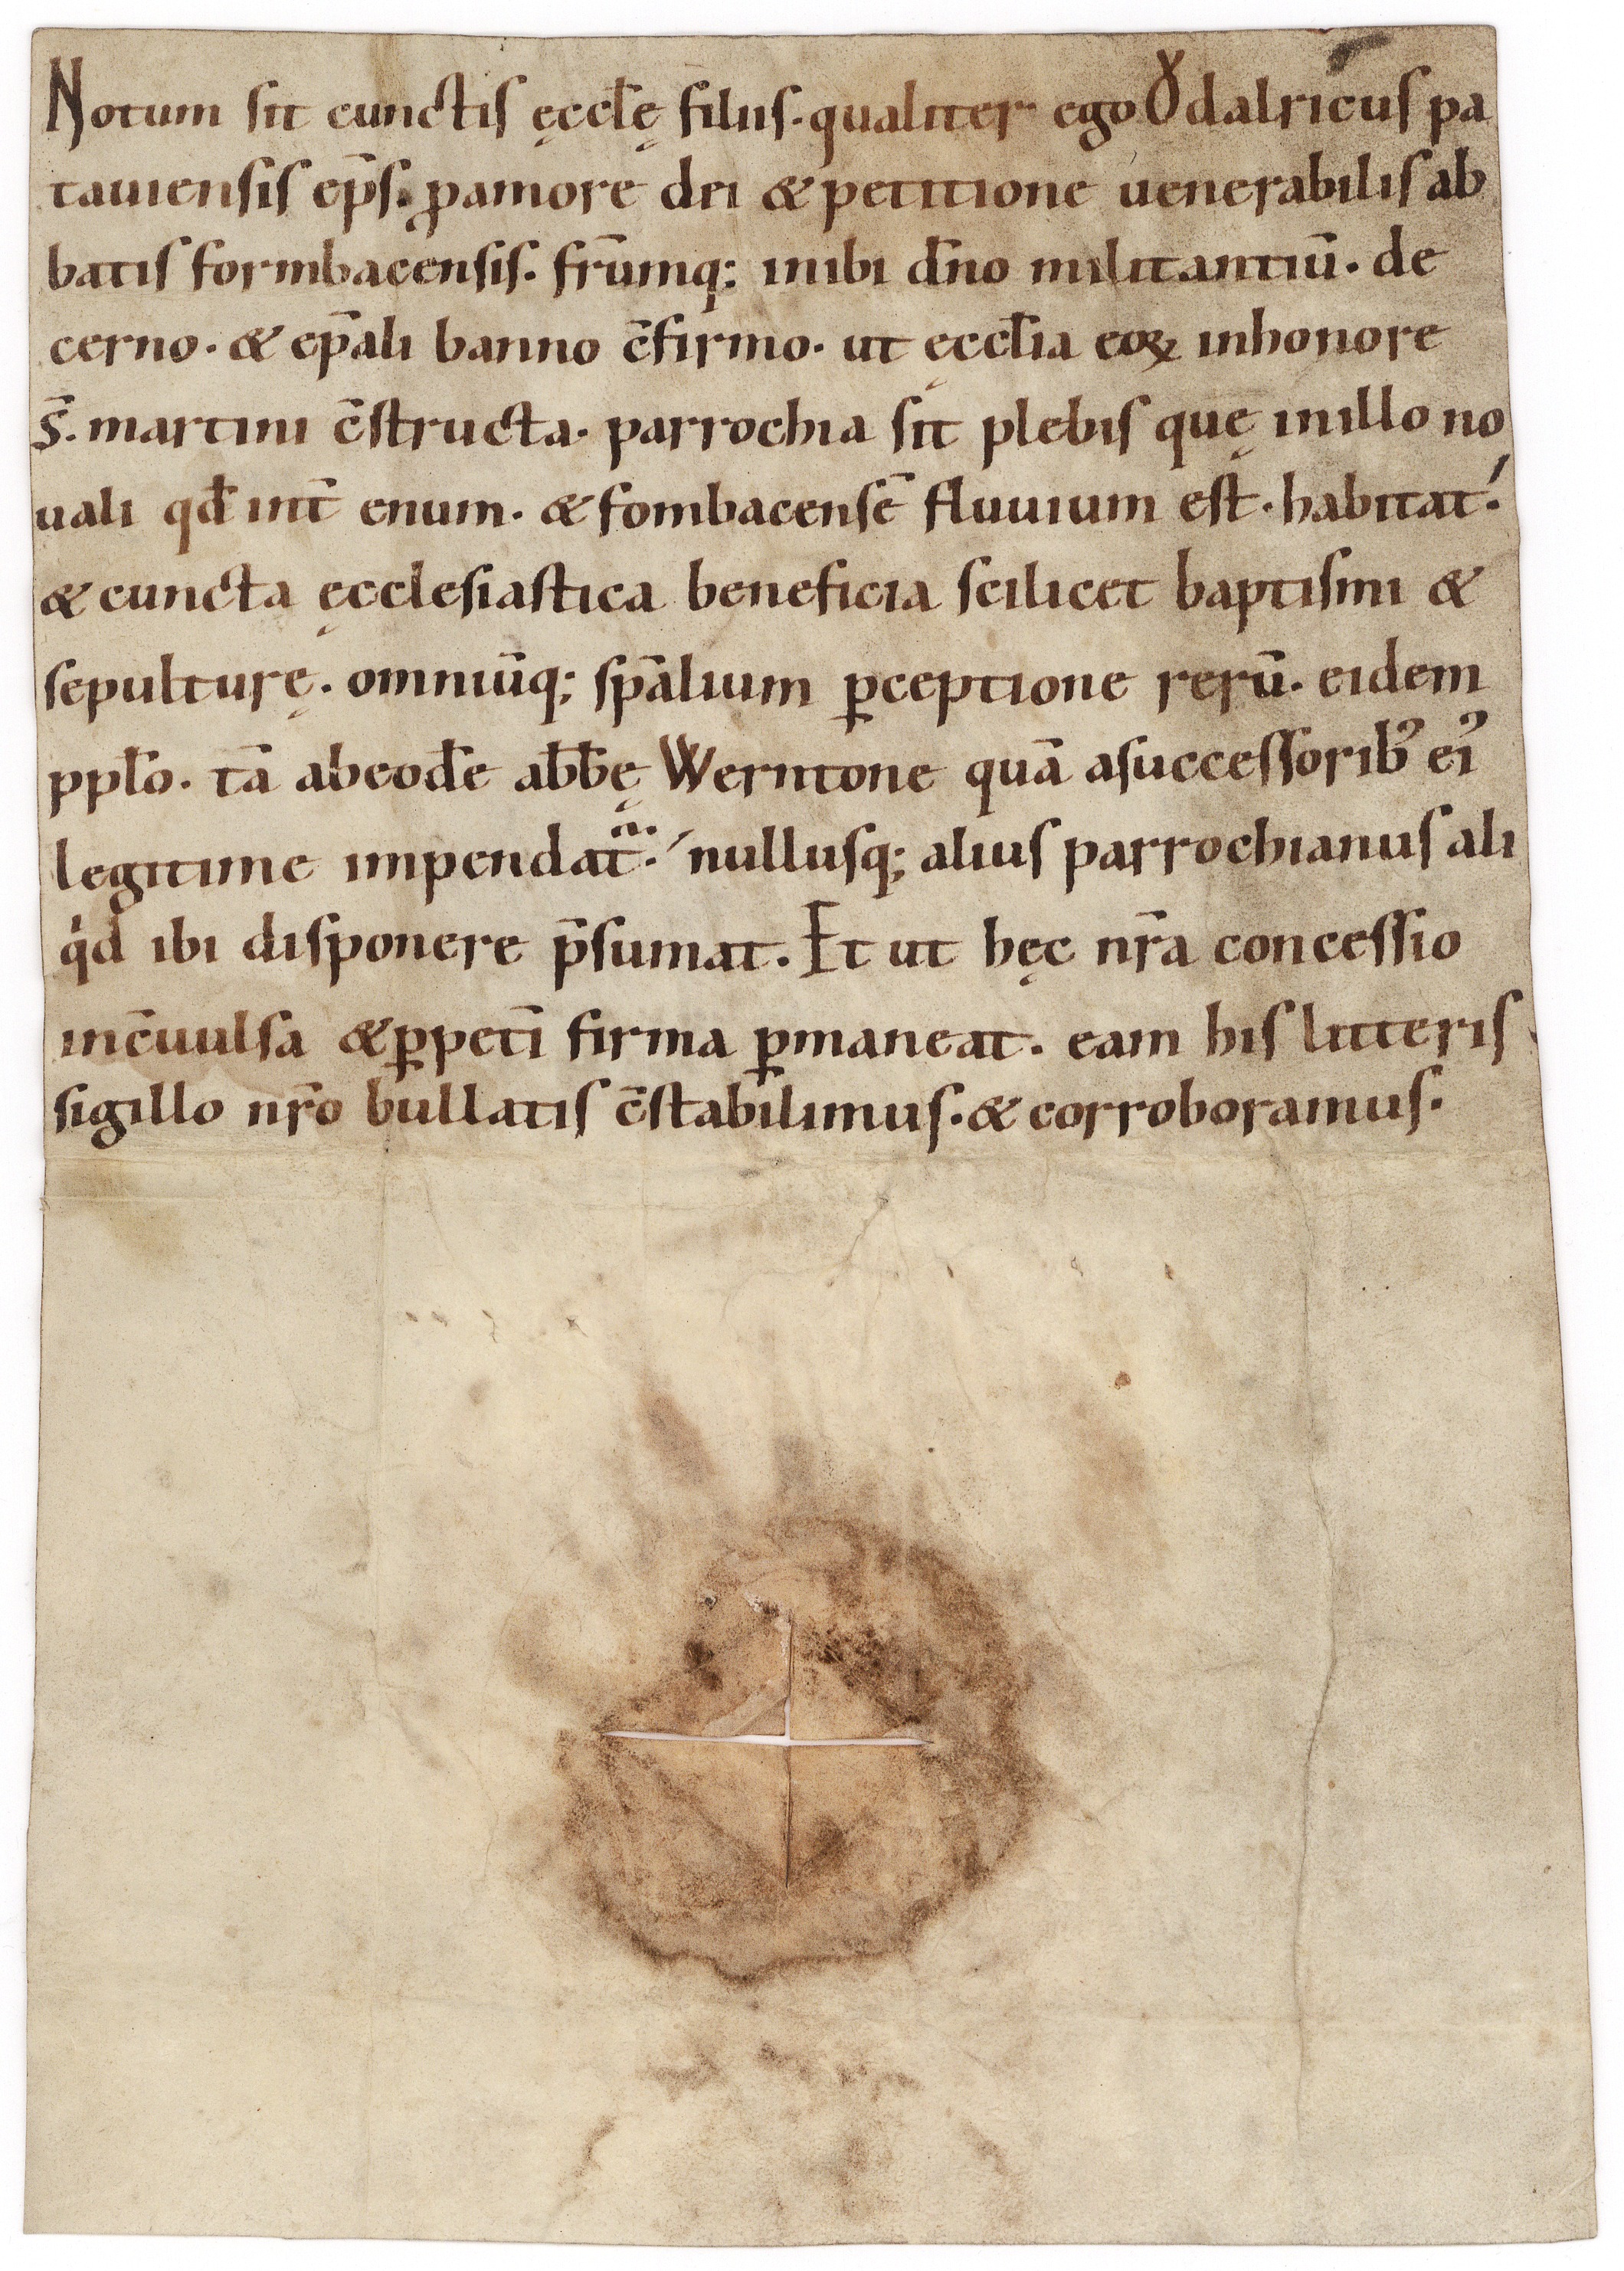 Notum sit cunctis ęccl̄ę filiis. qualiter ego Ŏdalricus pa
tauiensis ep̄s. ꝓ amore dei & petitione uenerabilis ab
batis formbacensis. fr̄umq; inibi dn̄o militantiū. de
cerno. & ep̄ali banno c̄firmo. ut ęccl̄ia eoꝝ in honore
S̄. martini c̄structa. parrochia sit plebis quę in illo no
uali qd̄ int̄ enum. & fombacensē fluuium est. habitat.
& cuncta ęcclesiastica beneficia scilicet baptismi &
sepulturę. omniūq; sp̄alium ꝑceptione rerū. eidem
ppl̄o. tā ab eod̄e abb̄ę Werntone quā a successorib' ei'
legitime impendat᷑. nullusq; alius parrochianus ali
qͥd ibi disponere p̄sumat. Et ut hęc nr̄a concessio
inc̄uulsa & ꝑpeti̅ firma ꝑmaneat. eam his litteris
sigillo nr̄o bullatis c̄stabilimus. & corroboramus.